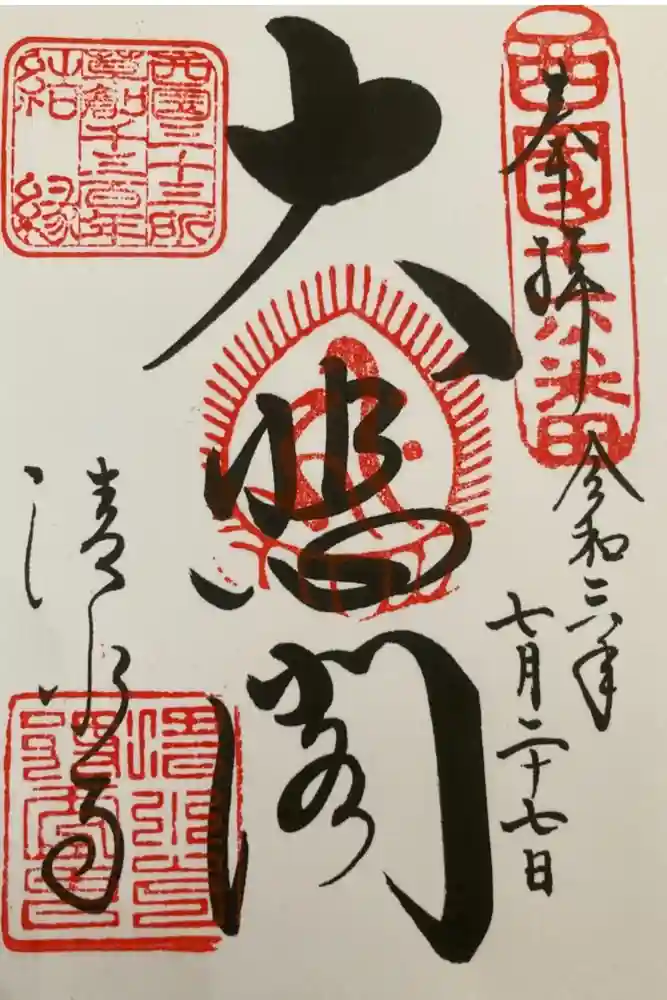 西國十六番
奉拝
令和三年
七月二十七日
大悲閣
西國三十三所
草創千三百年
結縁
清水寺